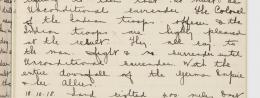 Unconditional surrender. The Colonel
of the Indian troops officers & the
Indian troops are highly pleased
at the result. They all say to
the man fight & no surrender until
Unconditional surrender. With the
entire downfall of the German Empire
Allies.
18.10.18. Land sighted 400 miles